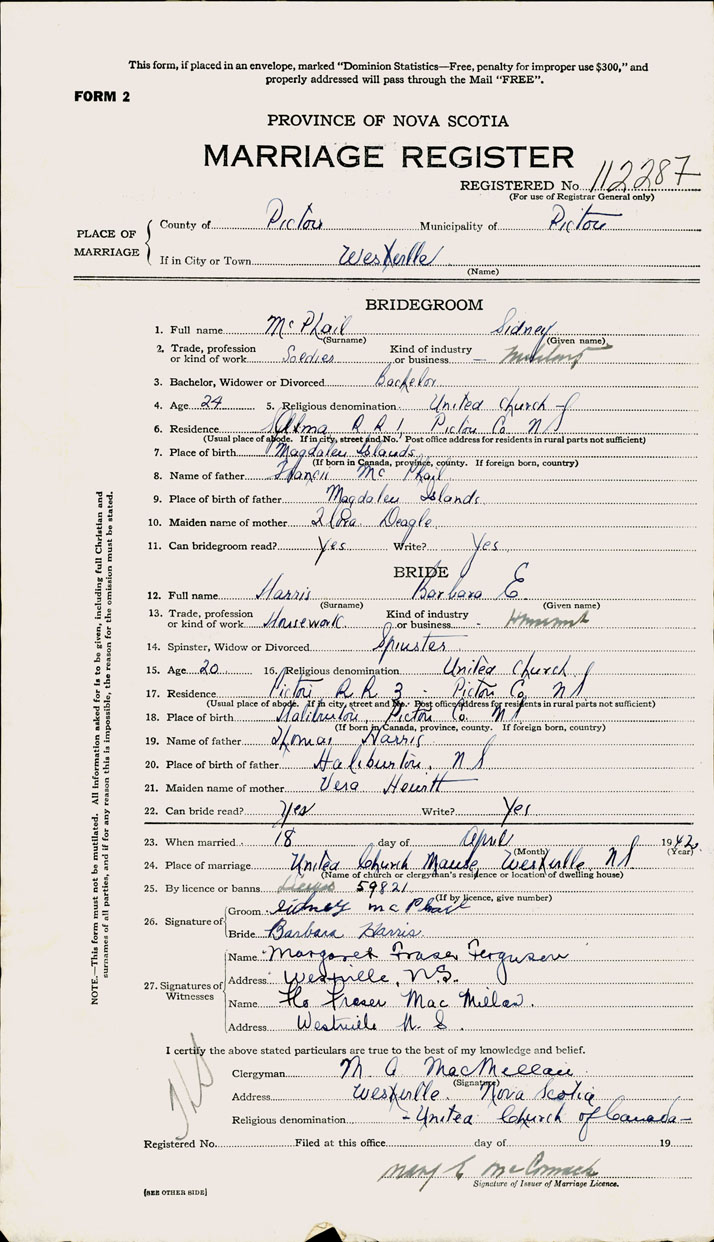 This form, if placed in an envelope, marked "Dominion Statistics—Free, penalty for improper use $300," and
properly addressed will pass through the Mail "FREE".
FORM 2
PROVINCE OF NOVA SCOTIA
MARRIAGE REGISTER
REGISTERED No. 112287
(For use of Registrar General only)
PLACE OF MARRIAGE
County of Pictou Municipality of Pictou
If in City or Town Westville
(Name)
BRIDEGROOM
1. Full name McPhail Sidney
(Surname) (Given name)
2. Trade, profession or kind of work Soldier Kind of industry or business — Military
3. Bachelor, Widower or Divorced Bachelor
4. Age 24 5. Religious denomination United Church
6. Residence R R 1 Pictou Co NS
(Usual place of abode. If in city, street and No. Post office address for residents in rural parts not sufficient)
7. Place of birth Magdalen Islands
(If born in Canada, province, county. If foreign born, country)
8. Name of father Francis McPhail
9. Place of birth of father Magdalen Islands
10. Maiden name of mother Flora Deagle
11. Can bridegroom read? Yes Write? Yes
BRIDE
12. Full name Harris Barbara E
(Surname) (Given name)
13. Trade, profession or kind of work Housework Kind of industry or business -
14. Spinster, Widow or Divorced Spinster
15. Age 20 16. Religious denomination United Church
17. Residence Pictou R R 3 - Pictou Co, NS
(Usual place of abode. If in city, street and No. Post office address for residents in rural parts not sufficient)
18. Place of birth Haliburton, Pictou Co. NS
(If born in Canada, province, county. If foreign born, country)
19. Name of father Thomas Harris
20. Place of birth of father Haliburton, NS
21. Maiden name of mother Vera Hewitt
22. Can bride read? Yes Write? Yes
23. When married 18 day of April 1942
(Month) (Year)
24. Place of marriage United Church Manse, Westville NS
(Name of church or clergyman's residence or location of dwelling house)
25. By licence or banns License 59821
(If by licence, give number)
26. Signature of
Groom Sidney McPhail
Bride Barbara Harris
27. Signatures of Witnesses
Name Margaret Fraser Ferguson
Address Westville, N.S.
Name Flo Fraser MacMillan.
Address Westville N. S.
I certify the above stated particulars are true to the best of my knowledge and belief.
Clergyman M A MacMillan
(Signature)
Address Westville Nova Scotia
Religious denomination - United Church of Canada -
Registered No. Filed at this office day of 19
Mary E McCormack
Signature of Issuer of Marriage Licence.
[SEE OTHER SIDE]
NOTE.—This form must not be mutilated. All information asked for is to be given, including full Christian and
surnames of all parties, and if for any reason this is impossible, the reason for the omission must be stated.